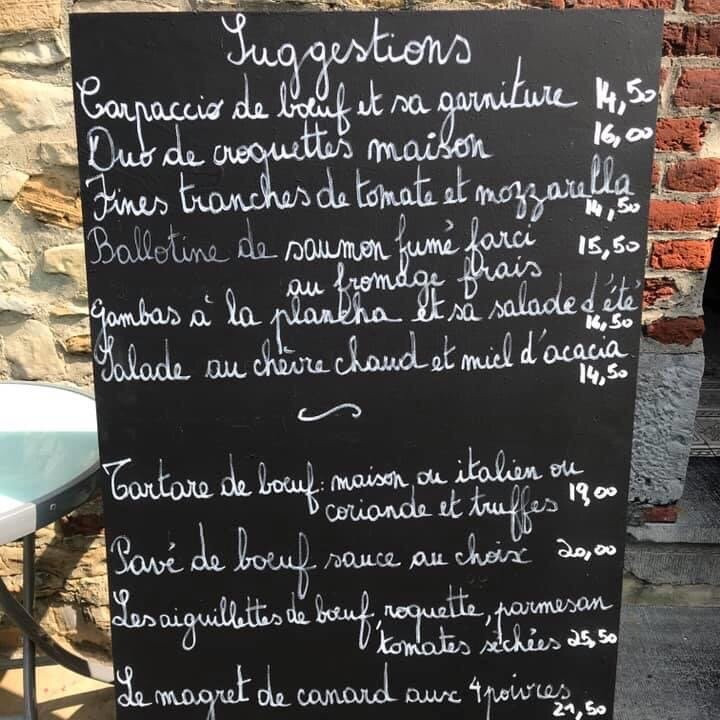 Suggestions
Carpaccio de bœuf et sa garniture 14,50
Duo de croquettes maison 16,00
Fines tranches de tomate et mozzarella
14,50
Ballotine de saumon fumé farci 15,50
au fromage frais
Gambas à la plancha et sa salade d'été
16,50
Salade au chèvre chaud et miel d'acacia
14,50
Tartare de bœuf: maison ou italien ou
coriande et truffes 19,00
Pavé de bœuf sauce au choix 20,00
Les aiguillettes de bœuf, roquette, parmesan
tomates séchées 25,50
Le magret de canard aux 4 poivres
21,50